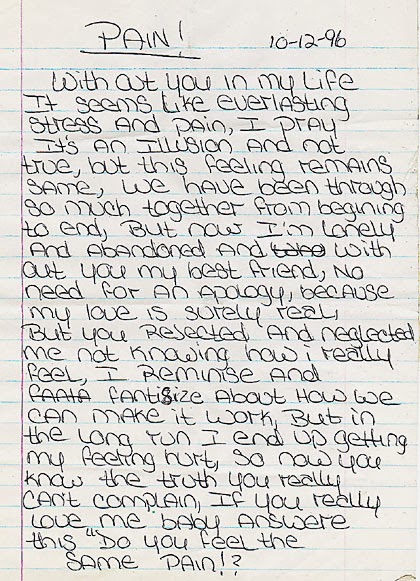 PAIN!
10-12-96
With out you in my Life
It seems like everlasting
stress And pain, I pray
It's An Illusion And not
true, but this feeling remains
same, we have been through
so much together from begining
to end, But now I'm lonely
And Abandoned And with
out you my best friend, No
need for An Apology, because
my love is surely real,
But you Rejected And neglected
me not knowing how i really
feel, I Reminise And
fantisize About How we
can make it work, But in
the long run I end up getting
my feeling hurt, so now you
know the truth you really
can't complain, If you really
Love me baby Answere
this "Do you feel the
SAME PAIN!?